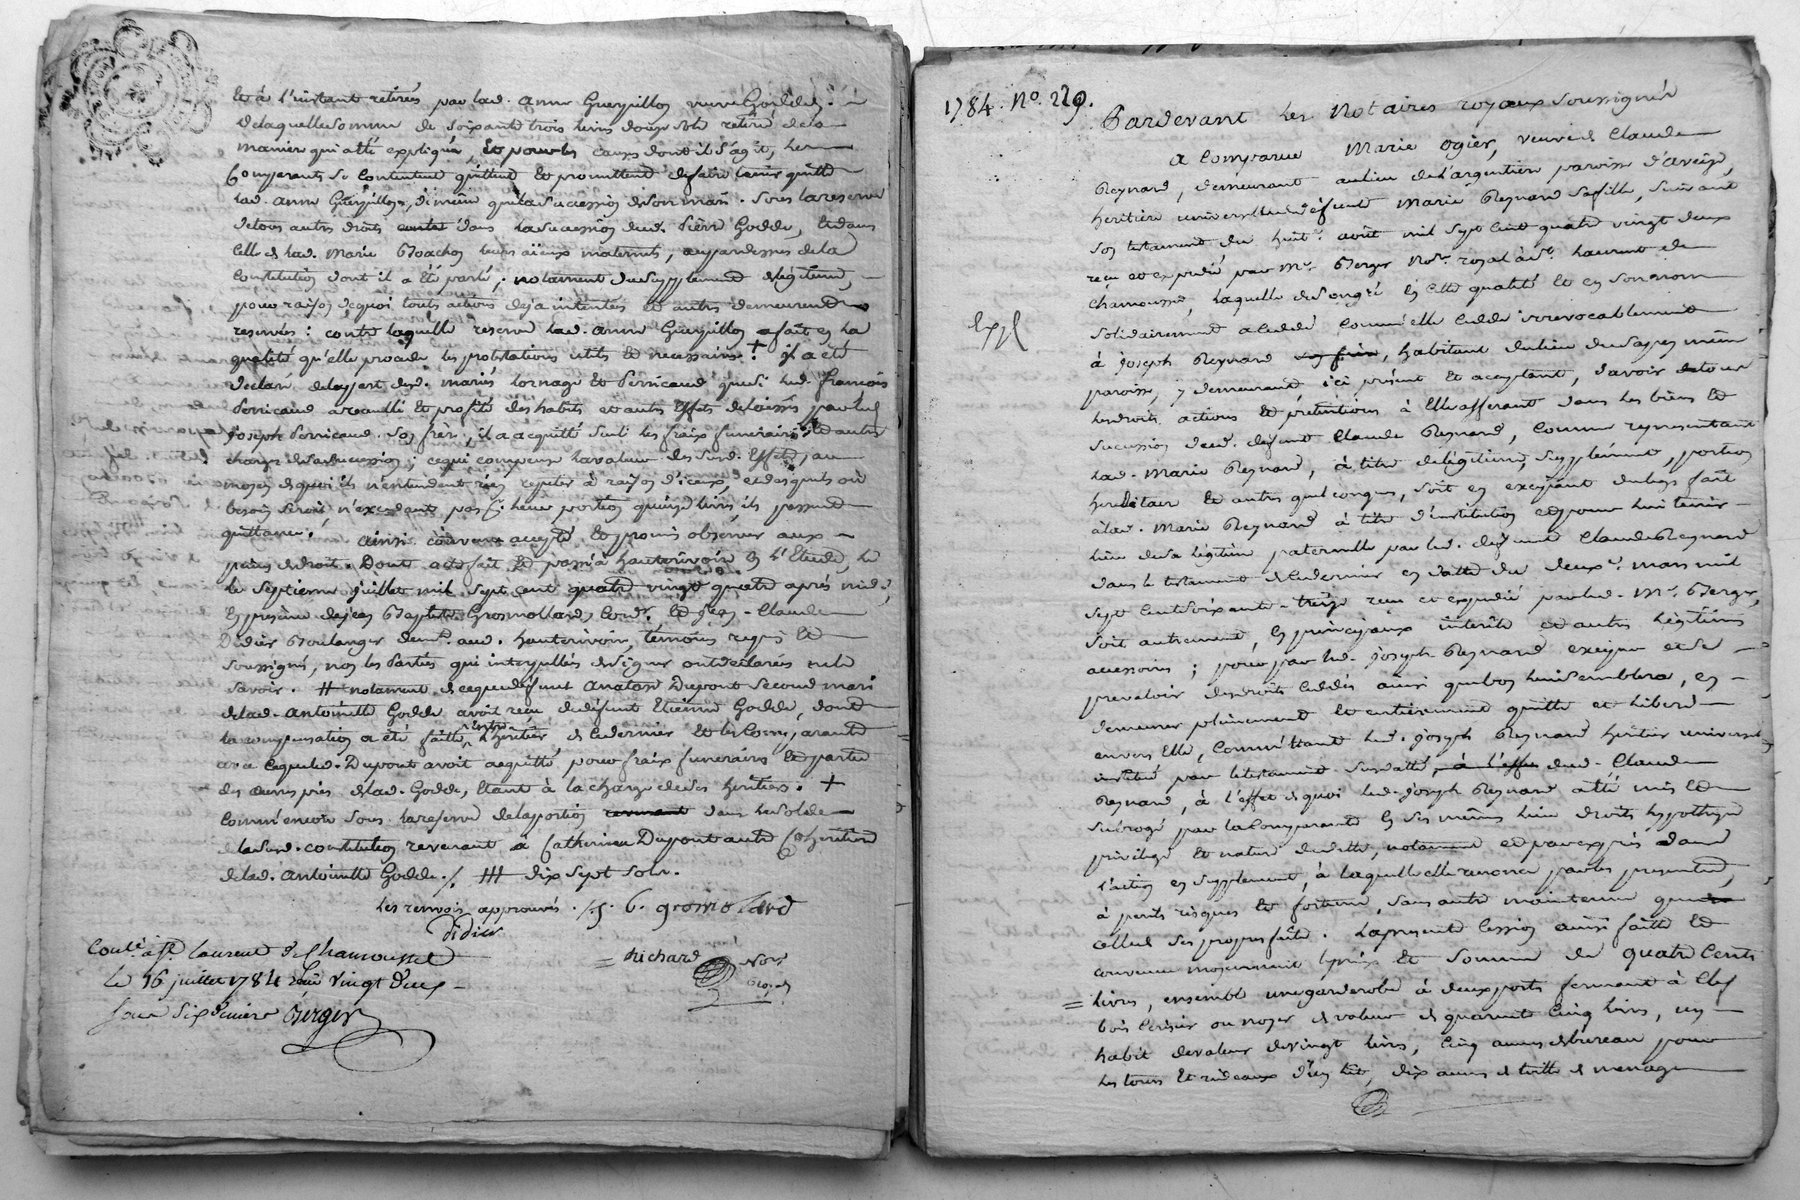 Et à l'instant retirés par lad. anne Guerpillon veuve Godde,
de laquelle somme de soixante trois livres douze sols retirée de la
maniere qui a été expliquée, et pour les causes dont il s'agit, les
Comparants se contentent quittent et promettent de faire tenir quitte
lad. anne Guerpillon, de même que la succession de son mari. sous la reserve
de tous autres droits dans la succession dud. Pierre Godde, et dans
celle de lad. Marie leurs aïeux maternels, au par dessus de la
Constitution dont il a été parlé; notament du supplement de légitime,
pour raison de quoi touts actions deja intentées et autres demeurent
reservées: contre laquelle reserve lad. anne Guerpillon a fait en la
qualité qu'elle procede les protestations utiles et necessaires. + il a été
declaré de la part desd. mariés Lornage et Perricaud que si led. françois
Perricaud a recueilli et profité des habits et autres effets delaissés par led.
joseph Perricaud son frère, il a acquitté seul les fraix funeraires et autres
charges de sa succession; ce qui compense la valeur des susd. Effets, au
moyen de quoi ils n'entendent rien repeter à raison d'iceux, et desquels où
besoin seroit n'excedant pas p.r leur portion quinze livres, ils passent
quittance. ainsi convenu accepté et promis observer aux
peines de droit. Dont acte fait et passé à hauterivoire en l'Etude,
le septieme juillet mil sept cent quatre vingt quatre après midi,
en presence de jean Baptiste Gromollard, Cord.r et jean-Claude
Didier Boulanger dem.t aud. hauterivoire, temoins requis et
soussignés, non les Parties qui interpellées de signer ont declarées ne le
savoir. # notament de ce que defunt anatoise Dupont second mari
de lad. antoinette Godde avoit reçu de defunt Etienne Godde, dont
la compensation a été faite, entre l'heritier de ce dernier et les
avec ce que led. Dupont avoit acquitté pour fraix funeraires et partie
des oeuvres pies de lad. Godde, étant à la charge de ses heritiers. +
Comm'encore sous la reserve de la portion dans le solde
de la susd. constitution revenant a Catherine Dupont autre Coheritiere
de lad. antoinette Godde./. ### dix sept sols.
les renvois approuvés ./. gromolard
didier
Richard Not.
royal
Conlé à S.t Laurent de Chamousset
le 16 juillet 1784 reçu vingt deux
sous six deniers Berger
1784. N.o 229.
Pardevant les Notaires royaux soussignés
a Comparue Marie ogier, veuve de Claude
Reynard, demeurant au lieu de l'argentiere paroisse d'aveize,
heritiere universelle de defunte Marie Reynard sa fille, suivant
son testament du huit.e août mil sept cent quatre vingt deux
reçu et expedié par M.e Berger Not.re royal à S.t Laurent de
Chamousset, laquelle de son gré en cette qualité et en son nom
Solidairement a Cedé comm'elle Cede irrevocablement
à joseph Reynard son frere, habitant du lieu du même
paroisse, y demeurant, ici présent et acceptant, savoir tous
les droits actions et prétentions à Elle afferant dans les biens et
succession de feu defunt Claude Reynard, comme representant
lad. Marie Reynard, à titre de légitime, supplément, portion
hereditaire et autres quelconques, soit en execution du legs fait
à lad. Marie Reynard à titre d'institution et pour lui tenir
lieu de sa légitime paternelle par led. defunt Claude Reynard
dans le testament de ce dernier en datte du deux.e mars mil
sept cent soixante-treize reçu et expedié par led. M.e Berger,
soit autrement, en principaux interêts et autres légitimes
accessoires; pour par led. joseph Reynard exiger et se
prevaloir des droits Cedés ainsi que bon lui semblera, en
demeurer pleinement et entierement quitte et libéré
envers Elle, Comm'étant led. joseph Reynard heritier universel
institué par le testament susdatté, à l'effet dud. Claude
Reynard, à l'effet de quoi led. joseph Reynard a été mis et
subrogé par la Comparante en ses mêmes lieu droits hypotheque
privilege et nature de dette, notament et par exprès dans
l'action en supplement, à laquelle elle renonce par les presentes,
à perils risques et fortune, sans autre maintenue que
celle de ses propres faits. la presente Cession ainsi faite et
convenue moyennant le prix et somme de quatre Cents
= livres, ensemble une garderobe à deux portes fermant à clef
bois Cerisier ou noyer de valeur de quarante cinq livres, un
habit de valeur de vingt livres, Cinq aunes de bureau pour
les tours et rideaux d'un lit, dix aunes de toille de menage